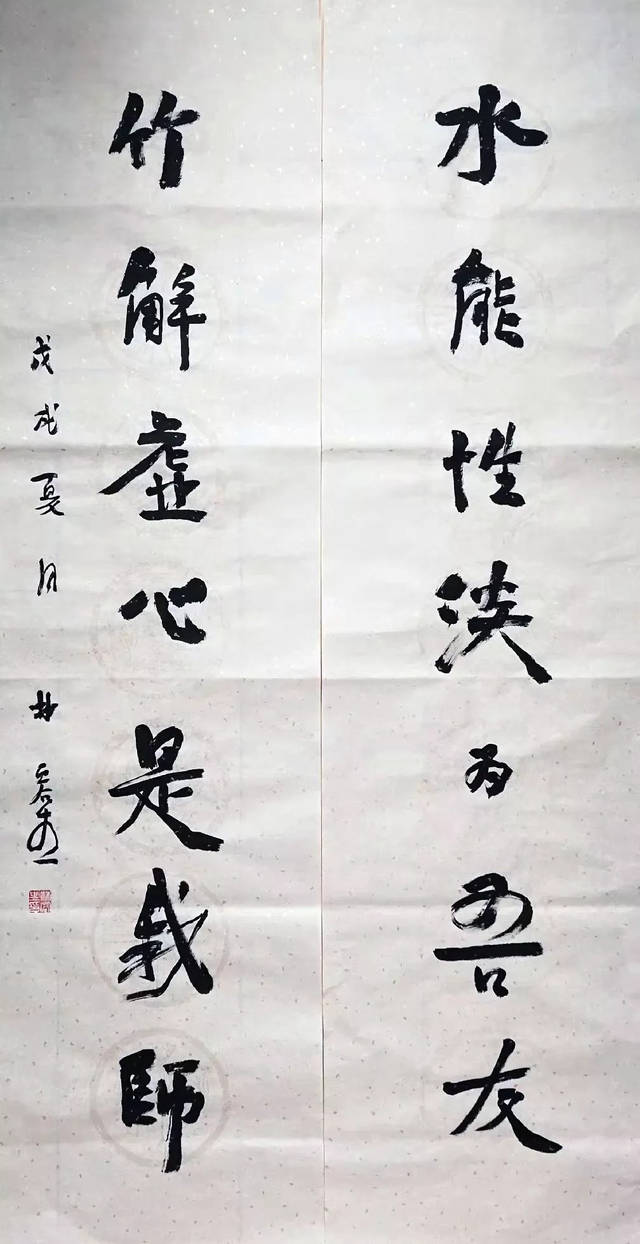 水能性淡为吾友
竹解虚心是我師
戊戌夏月 林